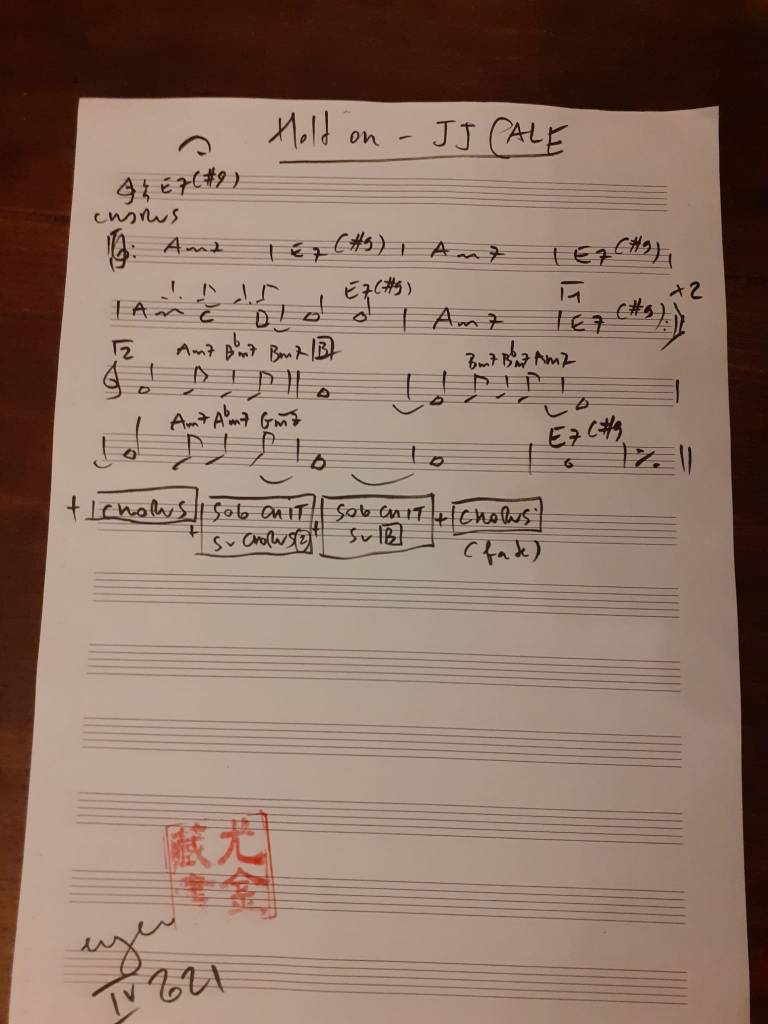 Hold on - JJ CALE
E7(#9)
CHORUS
Am7 | E7(#9) | Am7 | E7(#9) |
| Am C D E7(#9) | Am7 | 1 E7(#9) x2
2 Am7 Bbm7 Bm7 B Bm7 Bbm7 Am7
Am7 Abm7 Gm7 E7(#9 | ٪ ||
+ CHORUS + SOLO GUIT SU CHORUS 2 + SOLO GUIT SU B + CHORUS
(fade)
尤金
藏書
IV 2021